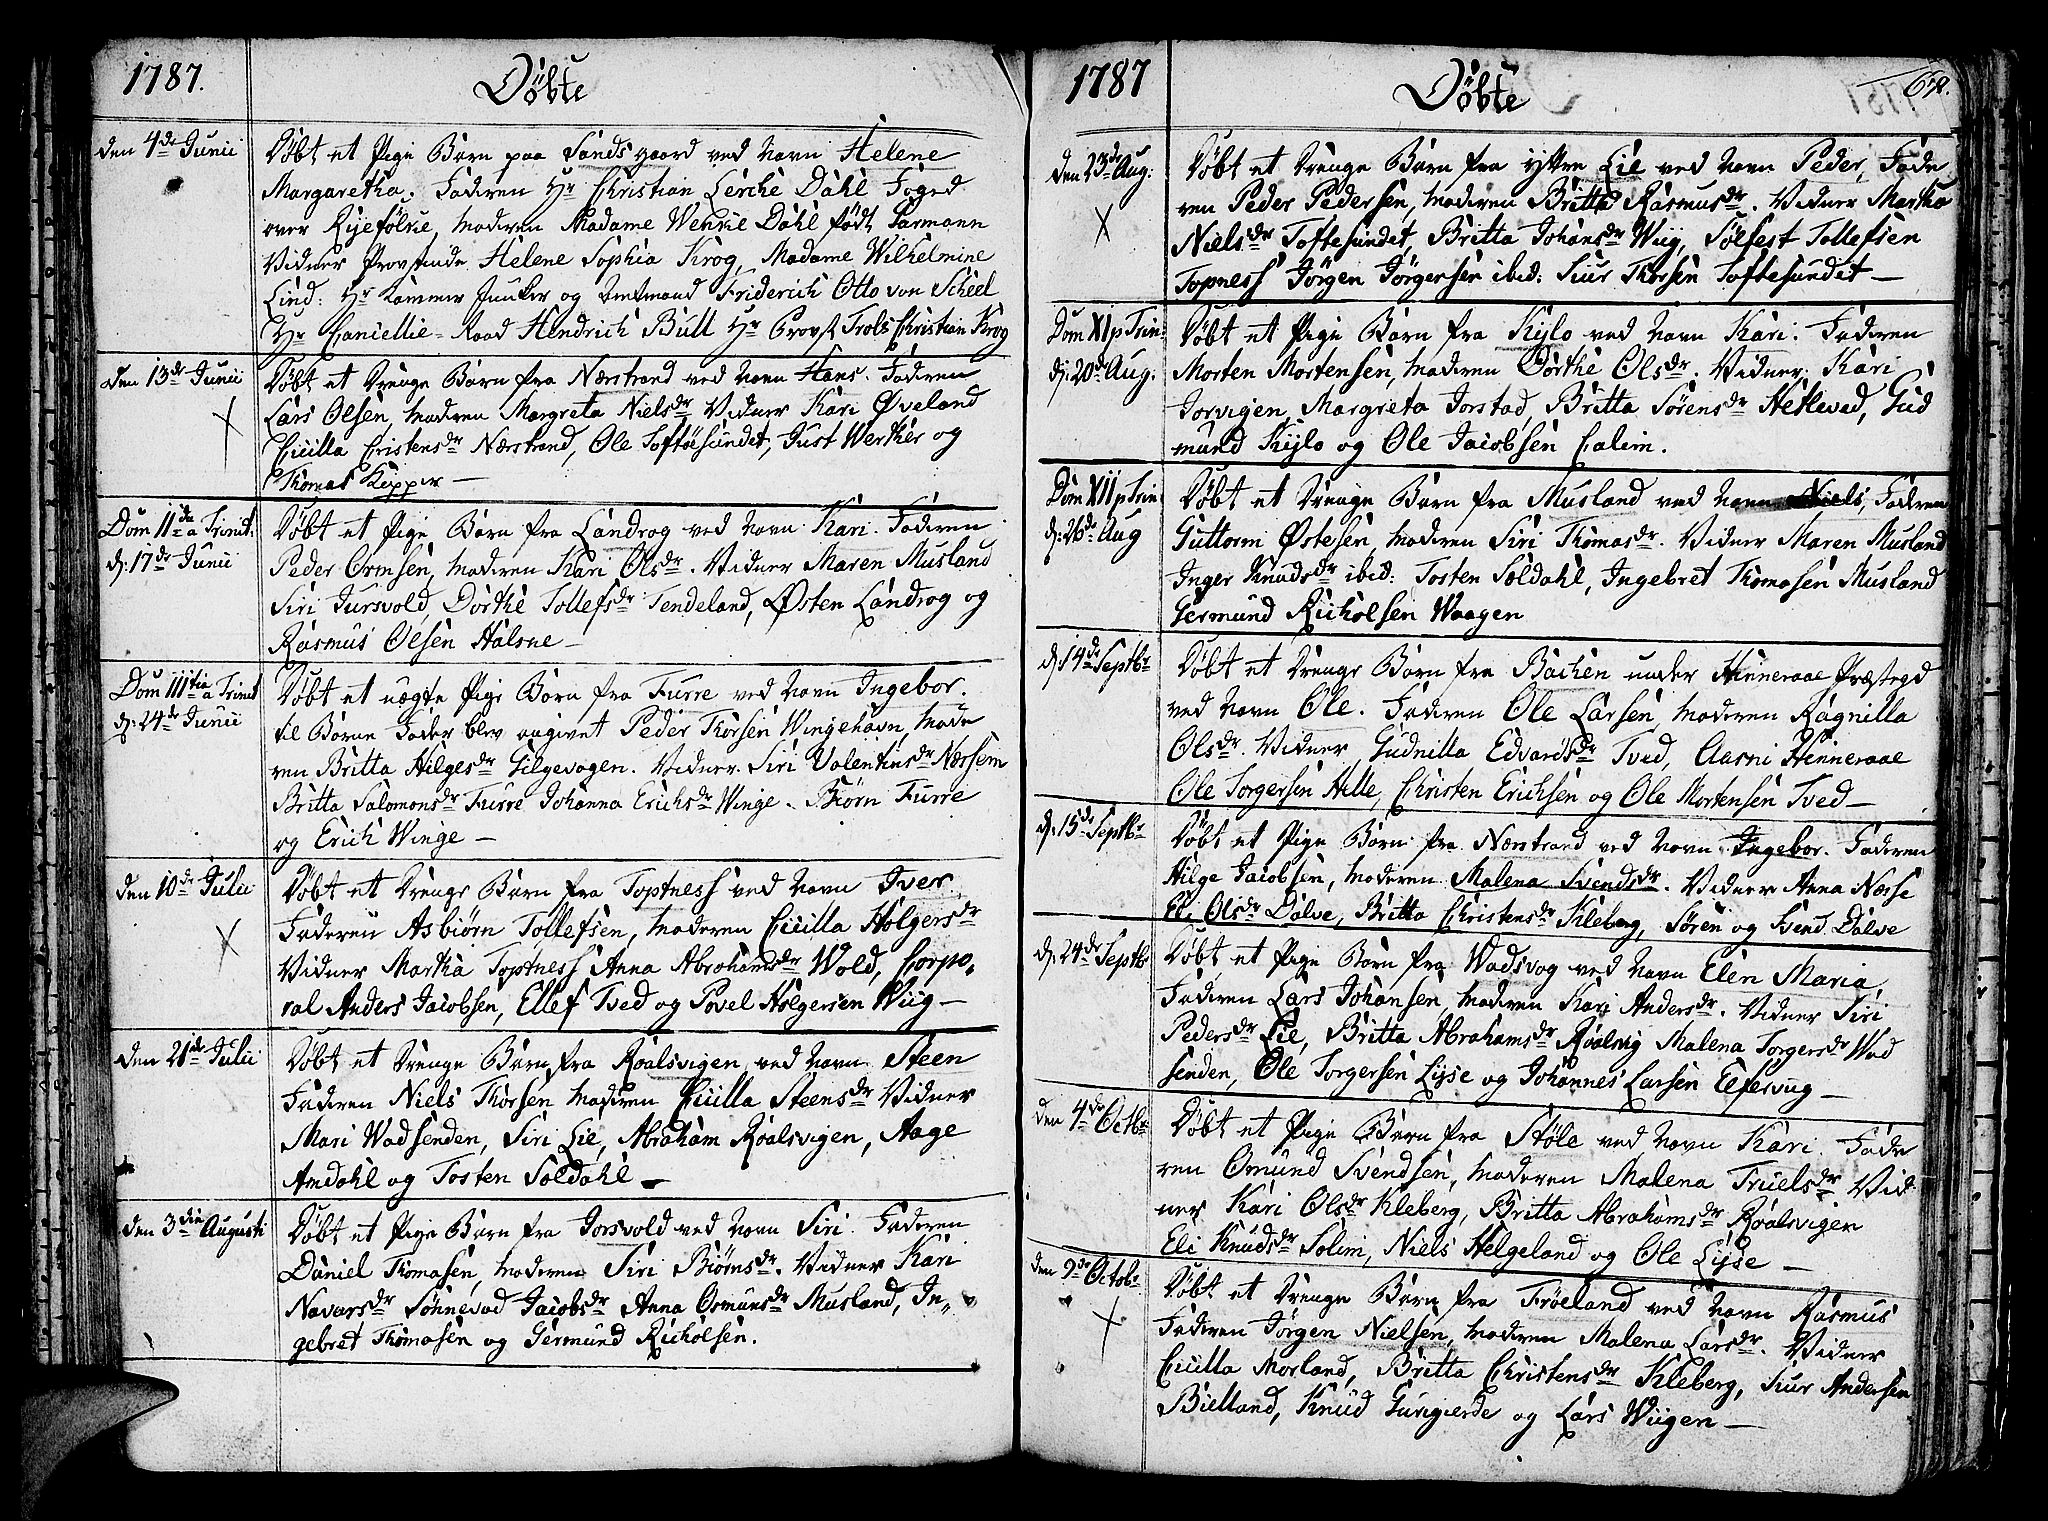 1787. Døbte
den 4de Junii Døbt et Pige Barn paa Sandsgaard ved Navn Helene
Margaretha. Faderen Hr Christian Lerche Dahl Foged
over Ryefölcke, Moderen Madame Wencke Dahl født Garmann
Vidner Provstinde Helene Sophia Krog, Madame Wilhelmine
Lind: Hr Kammer Juncker og Amtmand Friderich Otto von Scheel
Hr Cancellie-Raad Hendrich Bull Hr Provst Trols Christian Krog
den 13de Junii Døbt et Drenge Barn fra Nærstrand ved Navn Hans. Faderen
Lars Olsen, Moderen Margreta Nielsdr Vidner Kari Øveland
Cicilla Cristensdr Nærstrand, Ole Toftøesundet, Just Werther og
Thomas Kipper —
Dom IIda a Trinit: Døbt et Pige Barn fra Landrog ved Navn Kari. Faderen
d: 17de Junii Peder Ormsen, Moderen Kari Olsdr. Vidner Maren Musland
Siri Jursvold, Dorthe Tollefsdr Tendeland, Østen Landrog og
Rasmus Olesen Halsne —
Dom IIItia a Trinit Døbt et uægte Pige Barn fra Furre ved Navn Ingebor.
d: 24de Junii til Barne Fader blev angivet Peder Thorsen Wingehavn, Mode
ren Britta Hilgesdr Gilgevogen. Vidner. Siri Valentinsdr Næssem
Britta Salomonsdr Furre Johanna Erichsdr Winge. Biørn Furre
og Erich Winge —
den 10de Julii Døbt et Drenge Barn fra Toptness ved Navn Iver.
Faderen Asbiørn Tollefsen, Moderen Cicilla Holgersdr
Vidner Martha Toptness Anna Abrahamsdr Wold, Corpo,
ral Anders Jacobsen, Ellef Tved og Povel Holgersen Wiig —
den 21de Julii Døbt et Drenge Barn fra Roalsvigen ved Navn Steen
Faderen Niels Thorsen Moderen Cicilla Steensdr Vidner
Mari Wadsenden, Siri Lie, Abraham Roalsvigen, Aage
Amdahl og Tosten Soldahl —
den 3die Augusti Døbt et Pige Barn fra Jorsvold ved Navn Siri. Faderen
Daniel Thomasen, Moderen Siri Biørnsdr. Vidner Kari
Navarsdr Sønnevad Jacobsdr Anna Osmunsdr Musland, In,,
gebret Thomasen og Germund Richolsen.
1787 Døbte 62.
den 23de Aug: Døbt et Drenge Barn fra ÿttre Lie ved Navn Peder, Fade
ren Peder Pedersen, Moderen Britta Rasmusdr. Vidner Martha
Nielsdr Toftesundet, Britta Johansdr Wiig, Solfest Tollefsen
Topness Jörgen Jörgersen ibid: Siur Thorsen Toftesundet —
Dom XI p Trin: Døbt et Pige Barn fra Kijlo ved Navn Kari. Faderen
d: 20de Aug. Morten Mortensen, Moderen Dorthe Olsdr. Vidner. Kari
Jorvigen, Margreta Jorstad, Britta Sörensdr Hetleved, Gud
mund Kijlo og Ole Jacobsen Calim.
Dom XII p Trin: Døbt et Drenge Barn fra Musland ved Navn Niels, Faderen
d: 26de Aug Guttorm Østesen, Moderen Siri Thomasdr. Vidner Maren Musland
Inger Knudsdr ibid: Tosten Soldahl, Ingebret Thomasen Musland
Germund Richolsen Waagen
d: 14de Septbr Døbt et Drenge Barn fra Bachen under Hinneraae Præstegd
ved Navn Ole. Faderen Ole Larsen, Moderen Ragnilla
Olsdr. Vidner Gudnilla Edvardsdr Tved, Aasni Hinneraae
Ole Torgersen Hille, Christen Erichsen og Ole Mortensen Tved —
d: 15de Septbr Døbt et Pige Barn fra Nærstrand ved Navn Ingebor. Faderen
Hilge Jacobsen, Moderen Malena Svendsdr. Vidner Anna Næsse
Eli Olsdr Dalve, Britta Christensdr Kleberg, Sören og Svend Dalve
d: 24de Septb Døbt et Pige Barn fra Wadsvog ved Navn Elen Maria,
Faderen Lars Johansen, Moderen Kari Andersdr. Vidner Siri
Pedersdr Lie, Britta Abrahamsdr Roalsvig Malena Torgersdr Wad
senden, Ole Torgersen Lijse og Johannes Larsen Elfervug —
den 4de Octbr Døbt et Pige Barn fra Støle ved Navn Kari. Fade
ren Omund Svendsen, Moderen Malena Truelsdr Vid
ner Kari Olsdr Kleberg, Britta Abrahamsdr Roalsvigen
Eli Knudsdr Solim, Niels Helgeland og Ole Lijse —
den 9de Octobr Døbt et Drenge Barn fra Frøeland ved Navn Rasmus
Faderen Jörgen Nielsen, Moderen Malena Larsdr. Vidner
Cicilla Morland, Britta Christensdr Kleberg, Siur Andersen
Bielland, Knud Gurigierde og Lars Wiigen —